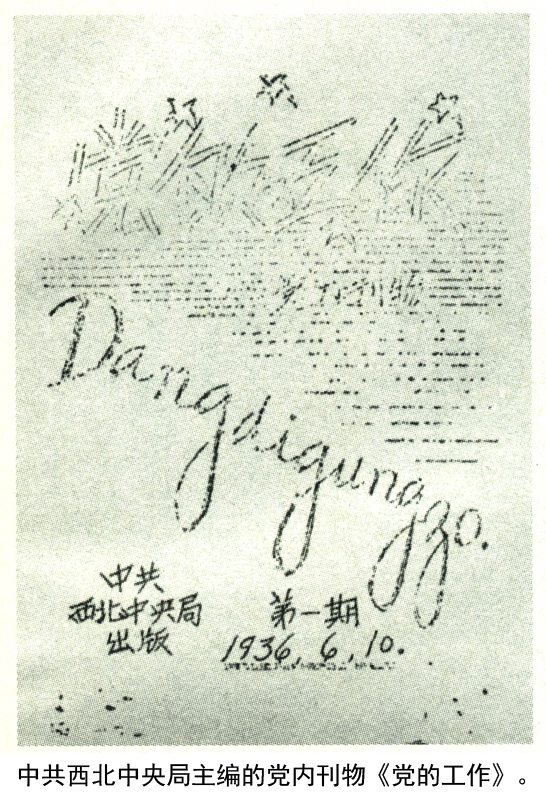 党的工作
党内刊物
Dangdigungzo.
中共
西北中央局
出版
第一期
1936,6,10.
中共西北中央局主编的党内刊物《党的工作》。